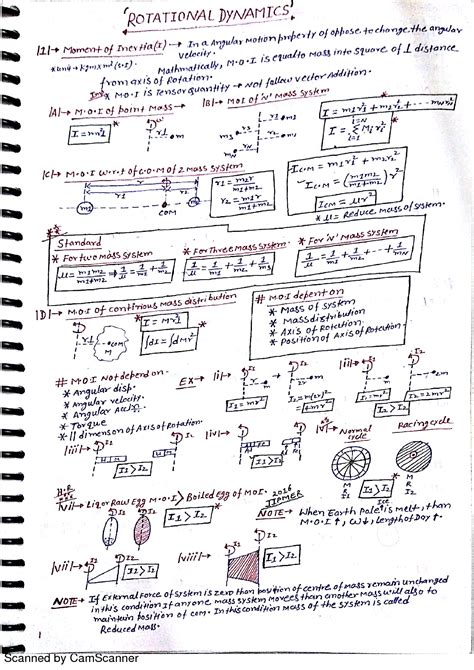 ROTATIONAL DYNAMICS
|2|→ Moment of Inertia(I) → In a Angular Motion property of oppose to change the angular velocity.
*unit → kgm×m² (S.I). Mathmatically, M·O·I is equal to Mass into square of ⊥ distance
from axis of Rotation.
M·O·I is Tensor quantity → Not follow vector Addition.
|A|→ M·O·I of point Mass
|B|→ MOI of 'N' Mass System
I = mr²
I = m1r1²+m2r2²+m3r3²+......+mNrN²
|C|→ M·O·I w.r.t C·O·M of 2 Mass system
r1 = m2r/m1+m2
r2 = m1r/m1+m2
ICM = m1r1²+m2r2²
ICM = (m1m2/m1+m2) r²
ICM = μr²
* μ = Reduce Mass of system.
m1 COM m2
Standard
* For two Mass system
* For Three Mass system
* For 'N' Mass system
μ = m1m2/m1+m2 ⇒ 1/μ = 1/m1 + 1/m2
1/μ = 1/m1 + 1/m2 + 1/m3
1/μ = 1/m1 + 1/m2 + ... + 1/mN
|D|→ M·O·I of continious Mass distribution
∫dI = ∫dMr²
# M·O·I depent on
* Mass of System
* Mass distribution
* Axis of Rotation
* Position of Axis of Rotation
# M·O·I Not depend on
* Angular disp.
* Angular velocity.
* Angular Accn
* Torque
* || dimension of Axis of Rotation.
EX→ |i|→
|ii|→
I1 = mr²
I2 = m(2r)²
= 4mr²
I1 = mr²
I2 = 2mr²
|iii|→
I1 > I2
|iv|→
I1 > I2
|v|→ Normal cycle
Racing cycle
|vi|→ Liq or Raw Egg M·O·I > Boiled egg of MOI
2016
JIPMER
I1 > I2
NOTE→ When Earth Pole Ice is melt, than
M·O·I ↑, ω↓, Length of Day ↑
|vii|→
I1 > I2
|viii|→
I1 > I2
NOTE→ If External Force of System is Zero than position of centre of mass remain unchanged
in this condition if anyone mass system movees than another Mass will also to
maintain position of com. In this condition Mass of the system is called
Reduced Mass.
1
Scanned by CamScanner